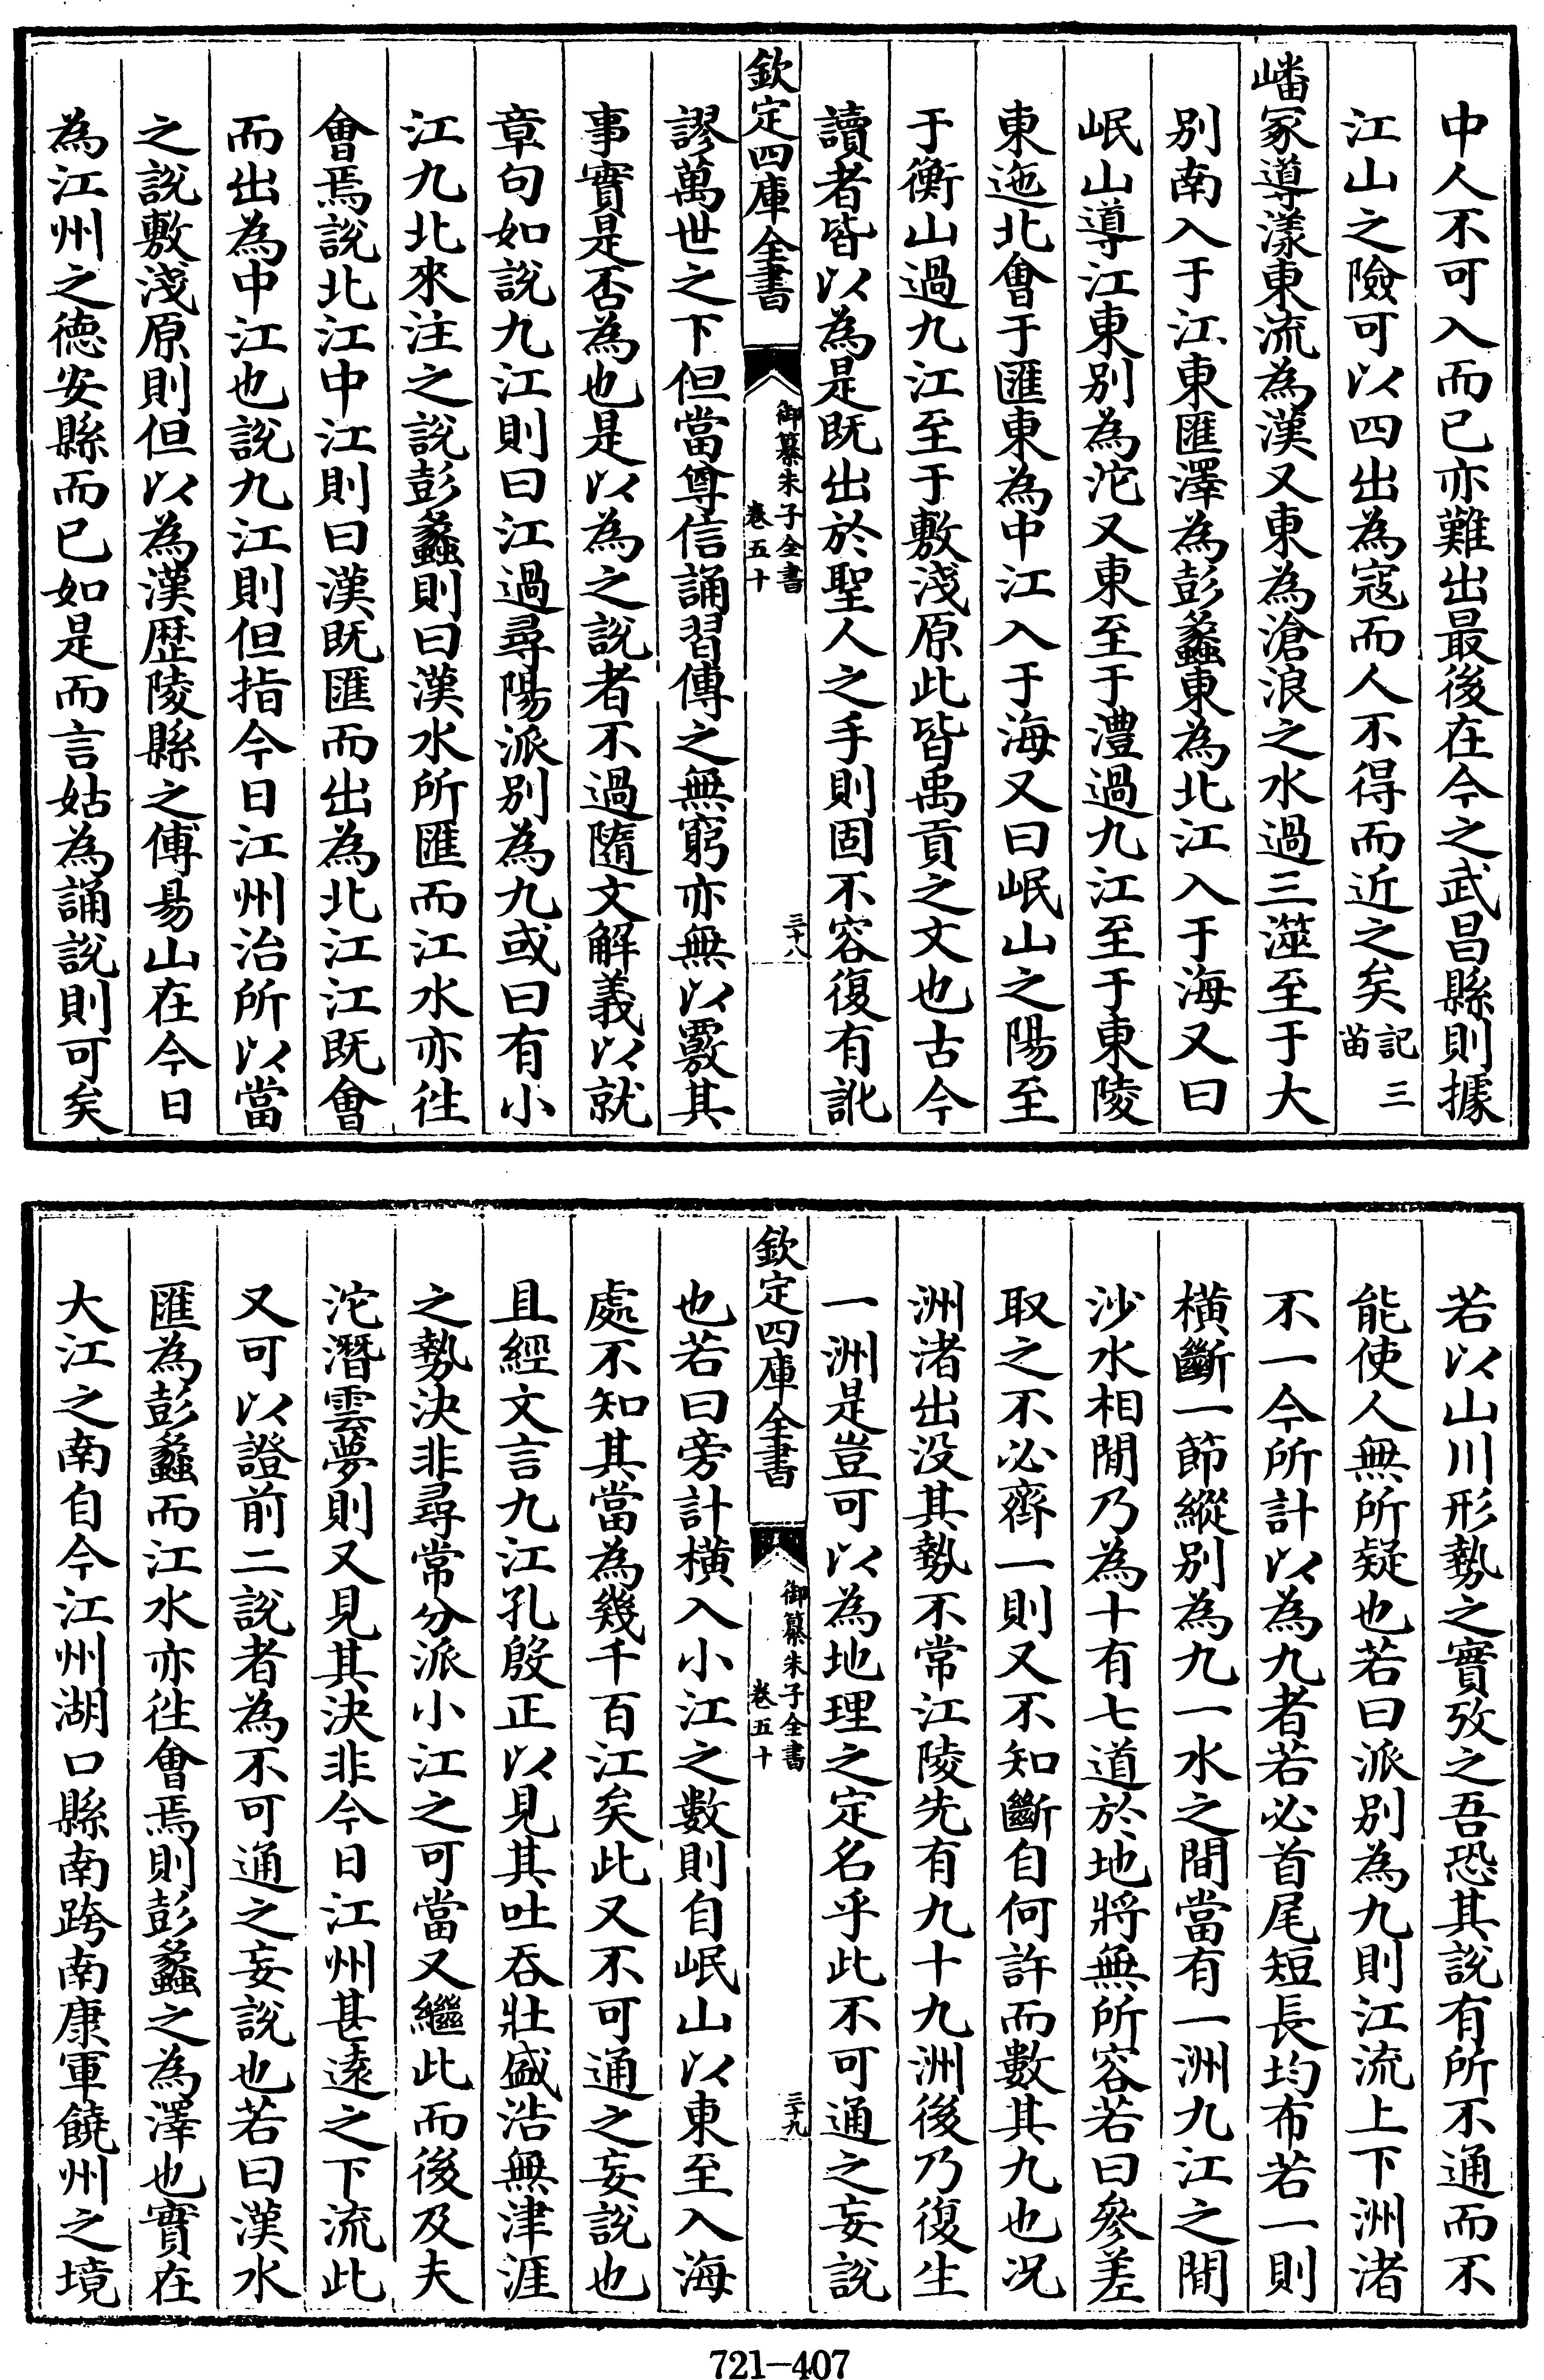 中人不可入而已亦難出最後在今之武昌縣則據
江山之險可以四出為寇而人不得而近之矣記三苗
嶓冢導漾東流為漢又東為滄浪之水過三澨至于大
别南入于江東匯澤為彭蠡東為北江入于海又曰
岷山導江東别為沱又東至于澧過九江至于東陵
東迤北會于匯東為中江入于海又曰岷山之陽至
于衡山過九江至于敷淺原此皆禹貢之文也古今
讀者皆以為是既出於聖人之手則固不容復有訛
欽定四庫全書 御纂朱子全書 卷五十 三十八
謬萬世之下但當尊信誦習傳之無窮亦無以覈其
事實是否為也是以為之說者不過隨文解義以就
章句如說九江則曰江過尋陽派别為九或曰有小
江九北來注之說彭蠡則曰漢水所匯而江水亦徃
會焉說北江中江則曰漢既匯而出為北江江既會
而出為中江也說九江則但指今日江州治所以當
之說敷淺原則但以為漢歴陵縣之傅昜山在今日
為江州之德安縣而已如是而言姑為誦說則可矣
若以山川形勢之實攷之吾恐其說有所不通而不
能使人無所疑也若曰派别為九則江流上下洲渚
不一今所計以為九者若必首尾短長均布若一則
橫斷一節縱别為九一水之間當有一洲九江之間
沙水相間乃為十有七道於地將無所容若曰參差
取之不必齊一則又不知斷自何許而數其九也况
洲渚出没其勢不常江陵先有九十九洲後乃復生
一洲是豈可以為地理之定名乎此不可通之妄說
欽定四庫全書 御纂朱子全書 卷五十 三十九
也若曰旁計橫入小江之數則自岷山以東至入海
處不知其當為幾千百江矣此又不可通之妄說也
且經文言九江孔殷正以見其吐吞壯盛浩無津涯
之勢決非尋常分派小江之可當又繼此而後及夫
沱潛雲夢則又見其決非今日江州甚遠之下流此
又可以證前二說者為不可通之妄說也若曰漢水
匯為彭蠡而江水亦徃會焉則彭蠡之為澤也實在
大江之南自今江州湖口縣南跨南康軍饒州之境
721-407